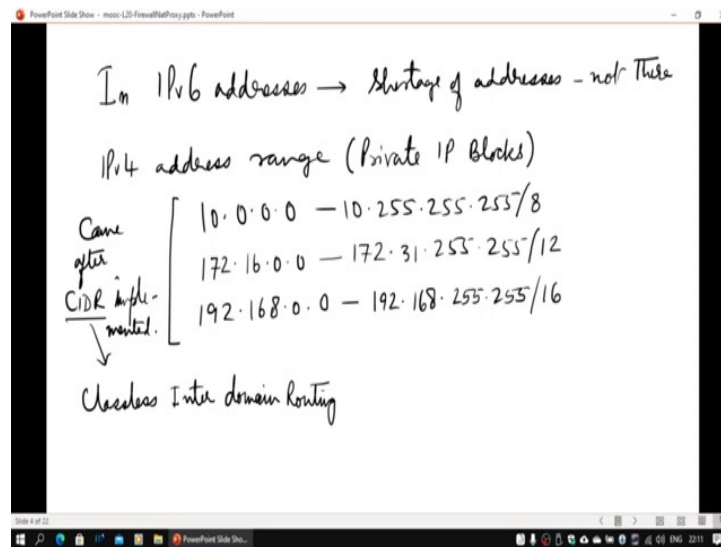 PowerPoint Slide Show - mooc-L20-FirewallNatProxy.pptx - PowerPoint
In IPv6 addresses → Shortage of addresses - not There
IPv4 address range (Private IP Blocks)
10.0.0.0 — 10.255.255.255/8
172.16.0.0 — 172.31.255.255/12
192.168.0.0 — 192.168.255.255/16
Came
after
CIDR imple-
mented.
Classless Inter domain Routing
Slide 4 of 22
PowerPoint Slide Sho...
ENG 22:11